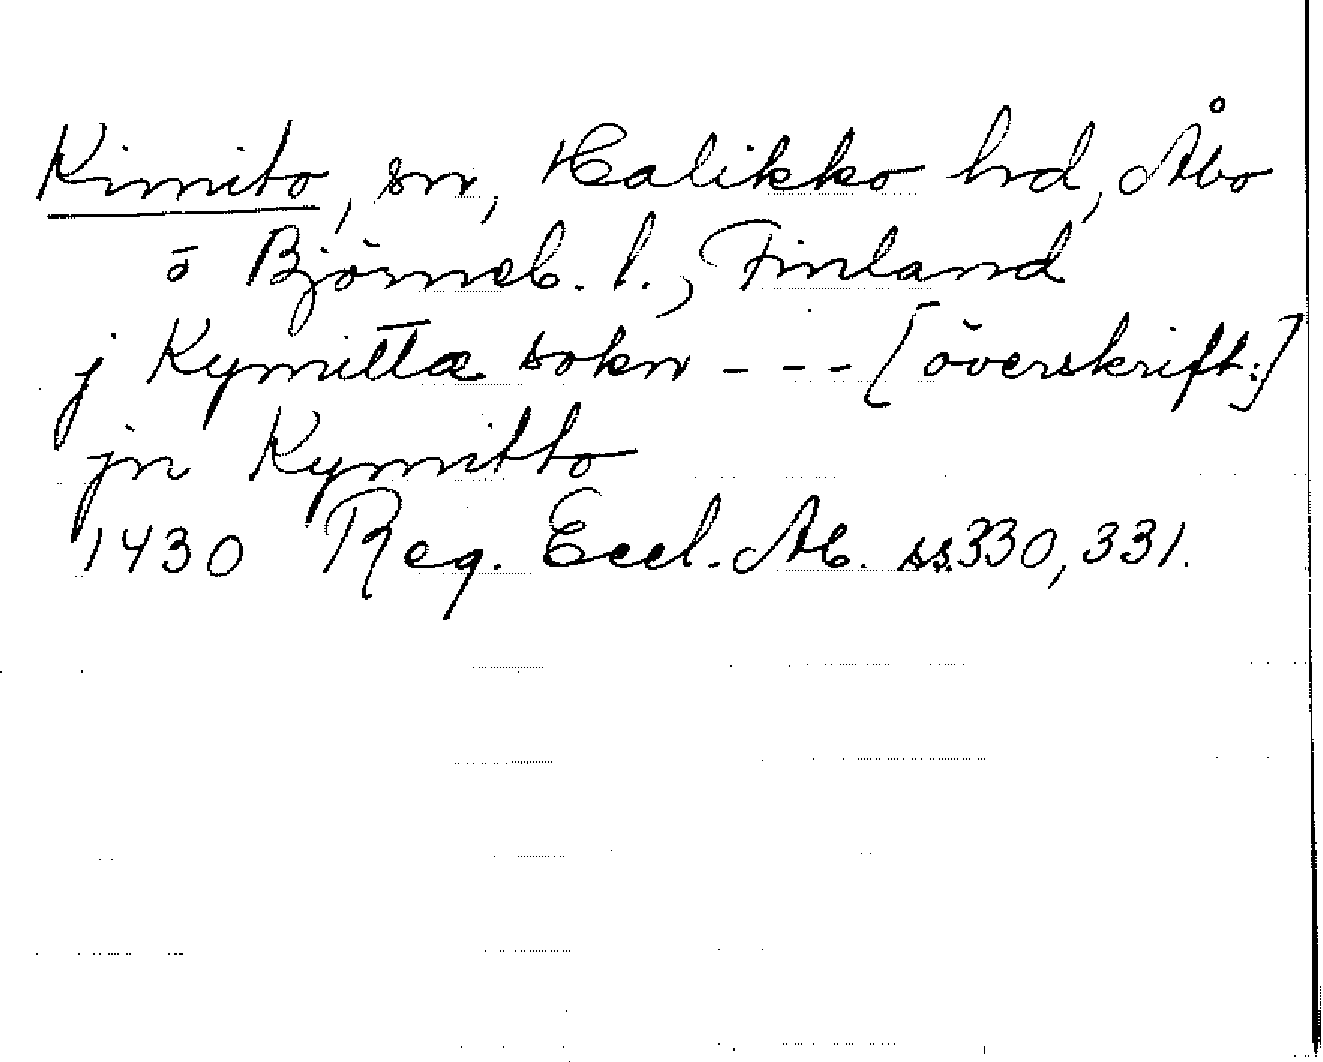 Kimito, sn, Halikko hrd, Åbo
o Björneb. l., Finland
j Kymittæ sokn - - - [överskrift:]
jn Kymitto
1430 Reg. Eccl. Ab. ss. 330, 331.